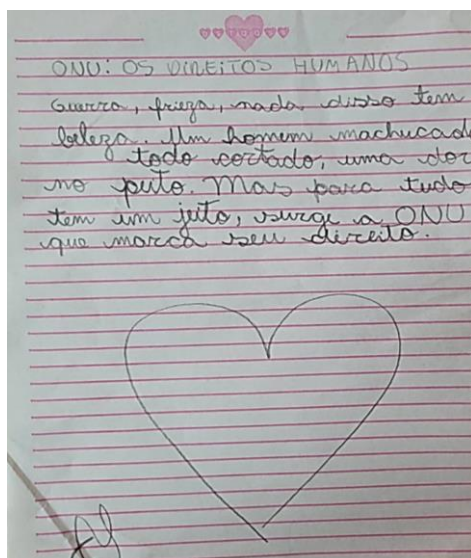 ONU: OS DIREITOS HUMANOS
Guerra, frieza, nada disso tem
beleza. Um homem machucad
todo cortado, uma dor
no peito. Mas para tudo
tem um jeito, surge a ONU
que marca seu direito.